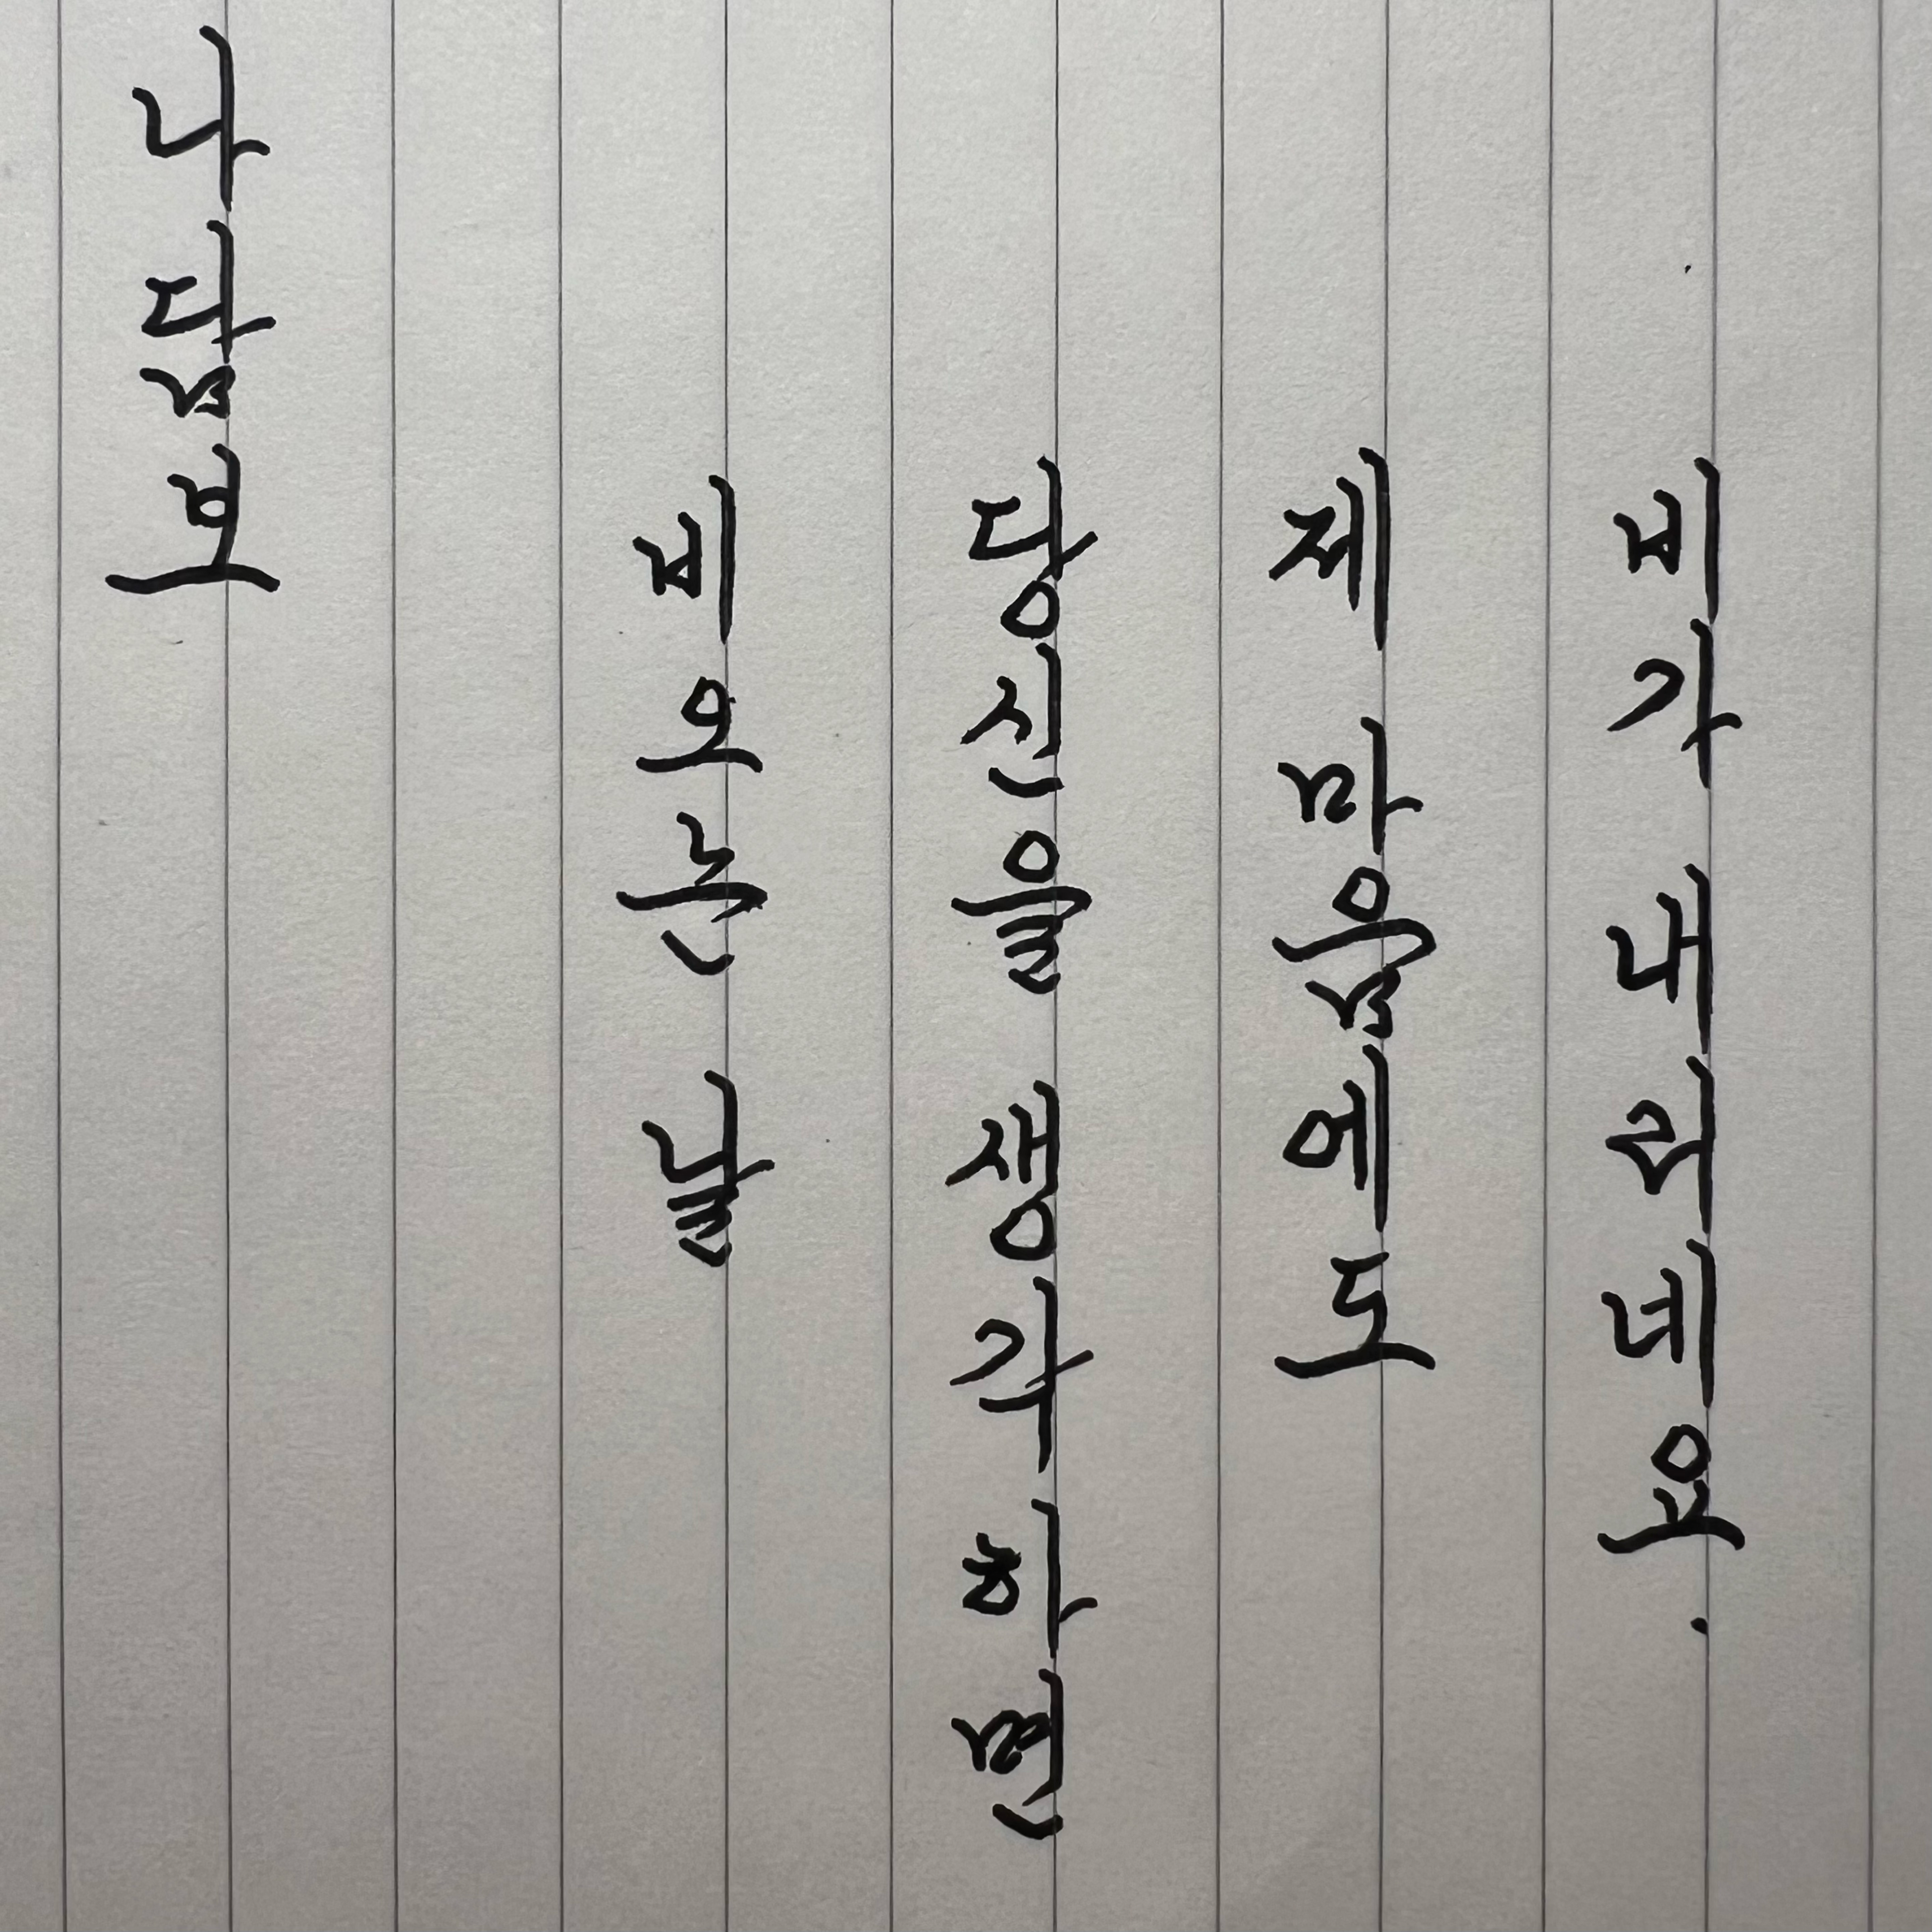 나담보
비오는 날
당신을 생각하면
제 마음에도
비가 내리네요.